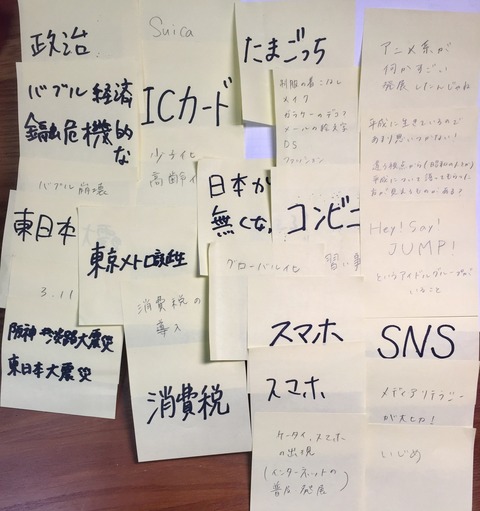 政治
Suica
たまごっち
アニメ系が
何かすごい
発展したんじゃね
バブル経済
ICカード
制服の着こなし
メイク
ガラケーのデコる
メールの絵文字
DS
金融危機的
な
少子化
高齢
バブル崩壊
平成に生きているので
あまり思いつかない!
違う視点から(昭和の人が)
平成について語ってもらった
方が見えるものがある?
日本が
無くな
コンビニ
東日本
3.11
東京メトロ誕生
グローバル化
習い事
Hey! Say!
JUMP!
というアイドルグループが
いること
消費税の
導入
阪神淡路大震災
東日本大震災
スマホ
SNS
消費税
スマホ
メディアリテラシー
が大切!
ケータイ、スマホ
の出現
(インターネットの
普及 発展)
いじめ